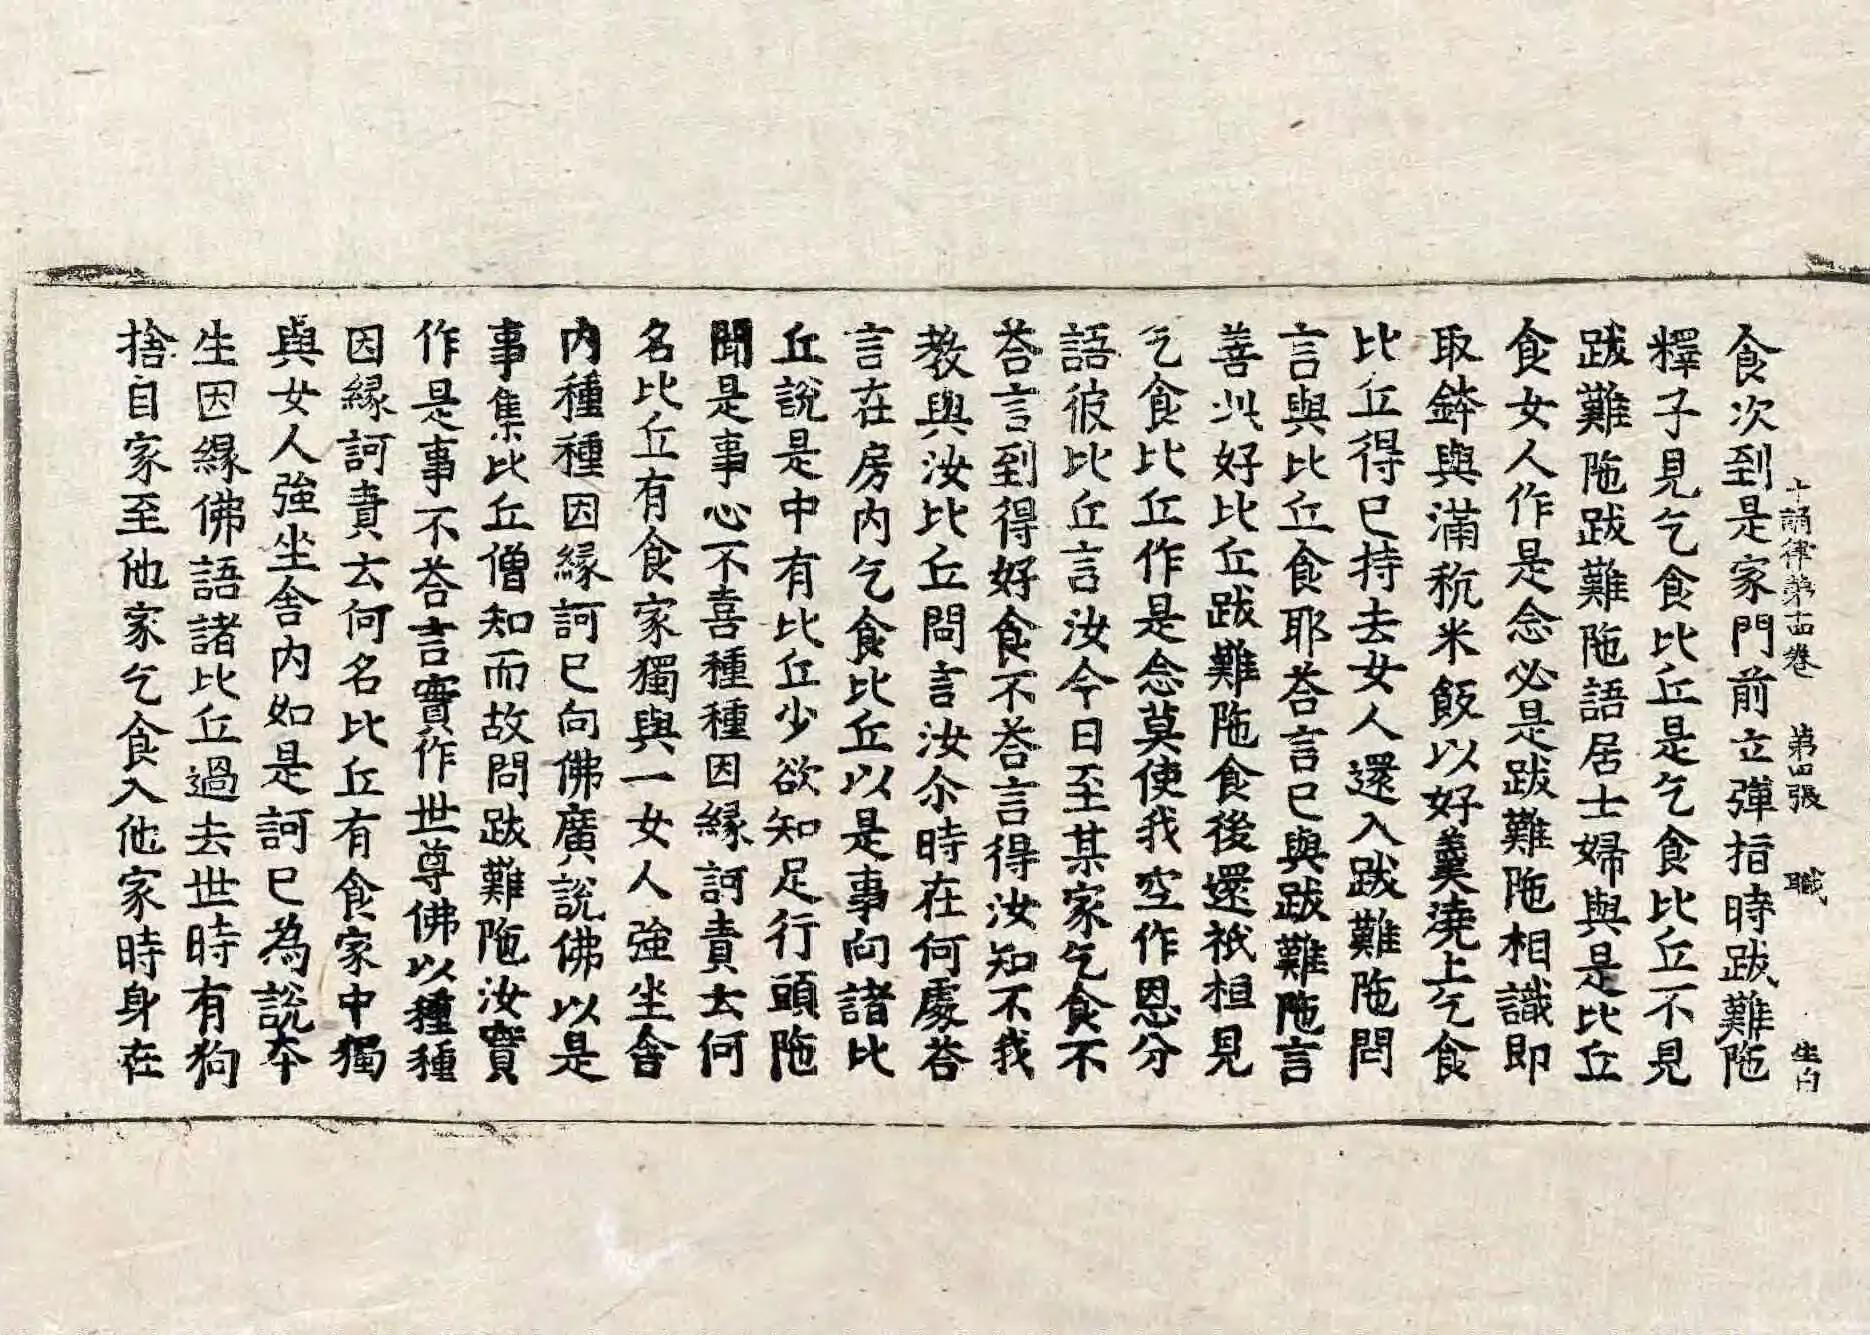 十誦律第十四卷　第四張　職　生白
食次到是家門前立彈指時跋難陁
釋子見乞食比丘是乞食比丘不見
跋難陁跋難陁語居士婦與是比丘
食女人作是念必是跋難陁相識即
取鉢與滿秔米飯以好羹澆上乞食
比丘得已持去女人還入跋難陁問
言與比丘食耶荅言已與跋難陁言
善哉好比丘跋難陁食後還祇桓見
乞食比丘作是念莫使我空作恩分
語彼比丘言汝今日至某家乞食不
荅言到得好食不荅言得汝知不我
教與汝比丘問言汝尒時在何處荅
言在房内乞食比丘以是事向諸比
丘說是中有比丘少欲知足行頭陁
聞是事心不喜種種因緣訶責云何
名比丘有食家獨與一女人強坐舍
内種種因緣訶已向佛廣說佛以是
事集比丘僧知而故問跋難陁汝實
作是事不荅言實作世尊佛以種種
因緣訶責云何名比丘有食家中獨
與女人強坐舍内如是訶已為說本
生因緣佛語諸比丘過去世時有狗
捨自家至他家乞食入他家時身在